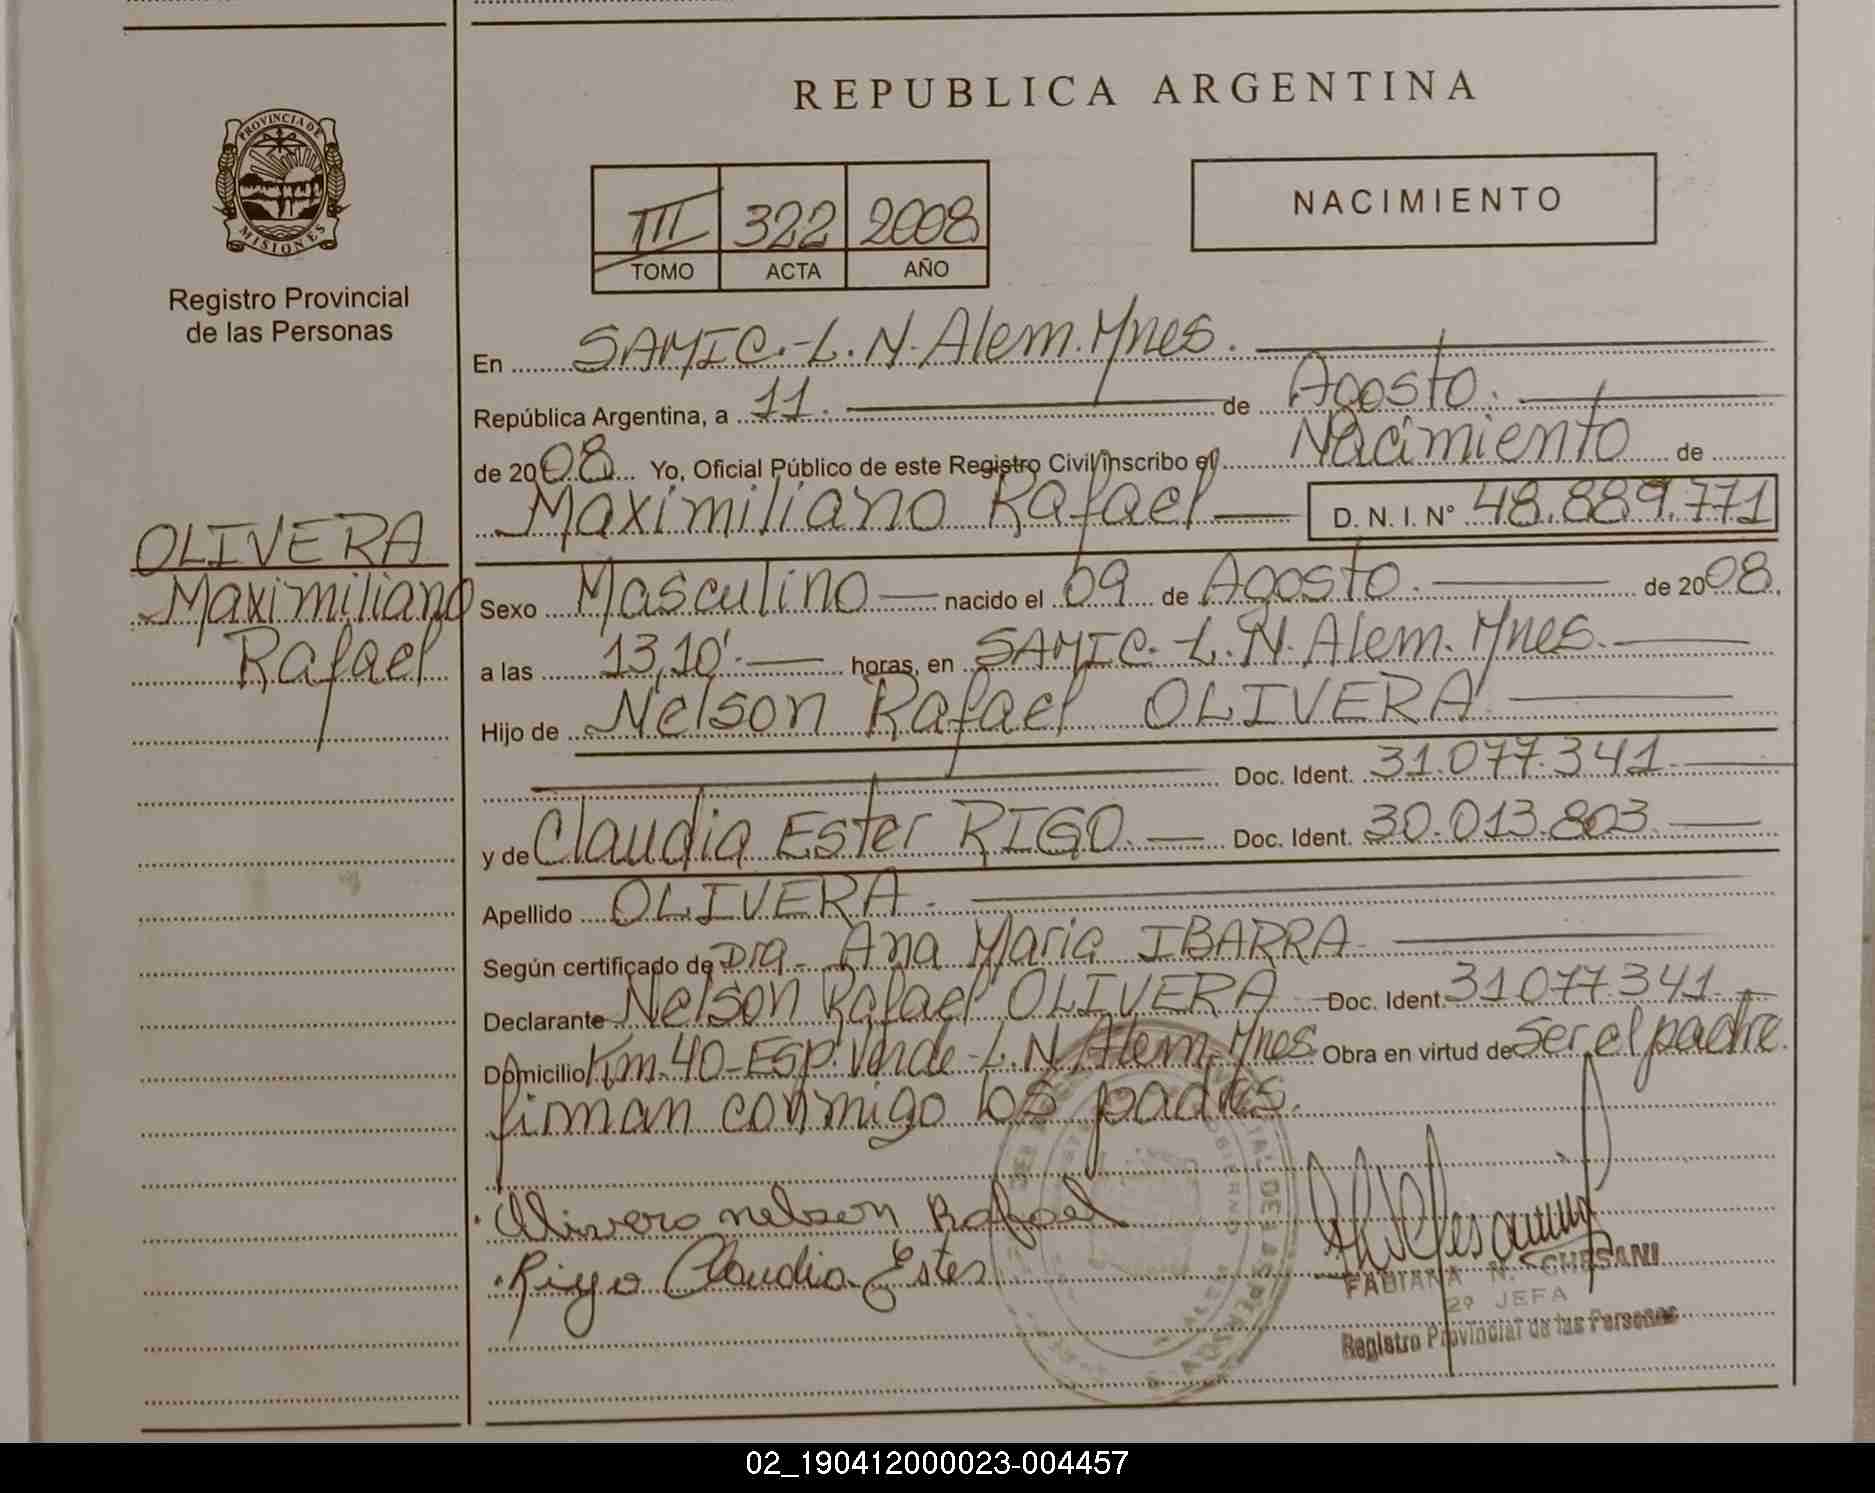 REPUBLICA ARGENTINA
PROVINCIA DE
MISIONES
Registro Provincial
de las Personas
III 322 2008
TOMO ACTA AÑO
NACIMIENTO
En SAMIC.-L.N.Alem.Mnes.
República Argentina, a 11. de Agosto.
de 2008 Yo, Oficial Público de este Registro Civil inscribo el Nacimiento de
Maximiliano Rafael D. N. I. N° 48.889.771
OLIVERA
Maximiliano
Rafael
Sexo Masculino nacido el 09 de Agosto. de 2008.
a las 13,10'. horas, en SAMIC.-L.N.Alem.Mnes.
Hijo de Nelson Rafael OLIVERA
Doc. Ident. 31.077.341
y de Claudia Ester RIGO. Doc. Ident. 30.013.803
Apellido OLIVERA.
Según certificado de Dra. Ana Maria IBARRA
Declarante Nelson Rafael OLIVERA Doc. Ident. 31077.341
Domicilio Km.40-Esp.Verde-L.N.Alem-Mnes Obra en virtud de ser el padre.
firman conmigo los padres.
Olivera nelson Rafael
Rigo Claudia Ester
FABIANA N. CHESANI
2º JEFA
Registro Provincial de las Personas
02_190412000023-004457